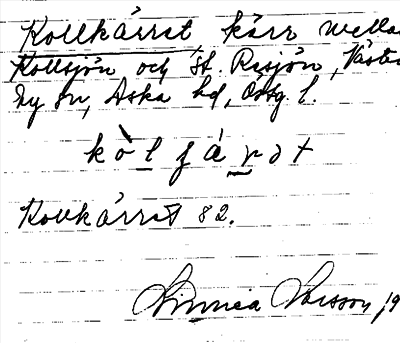 Kollkärret, kärr mella
Kollsjön och St. Resjön, Väster
Ny sn, Aska hd, Östg. l.
kòlfárət
Kollkärret 82.
Linnea Larsson, 19